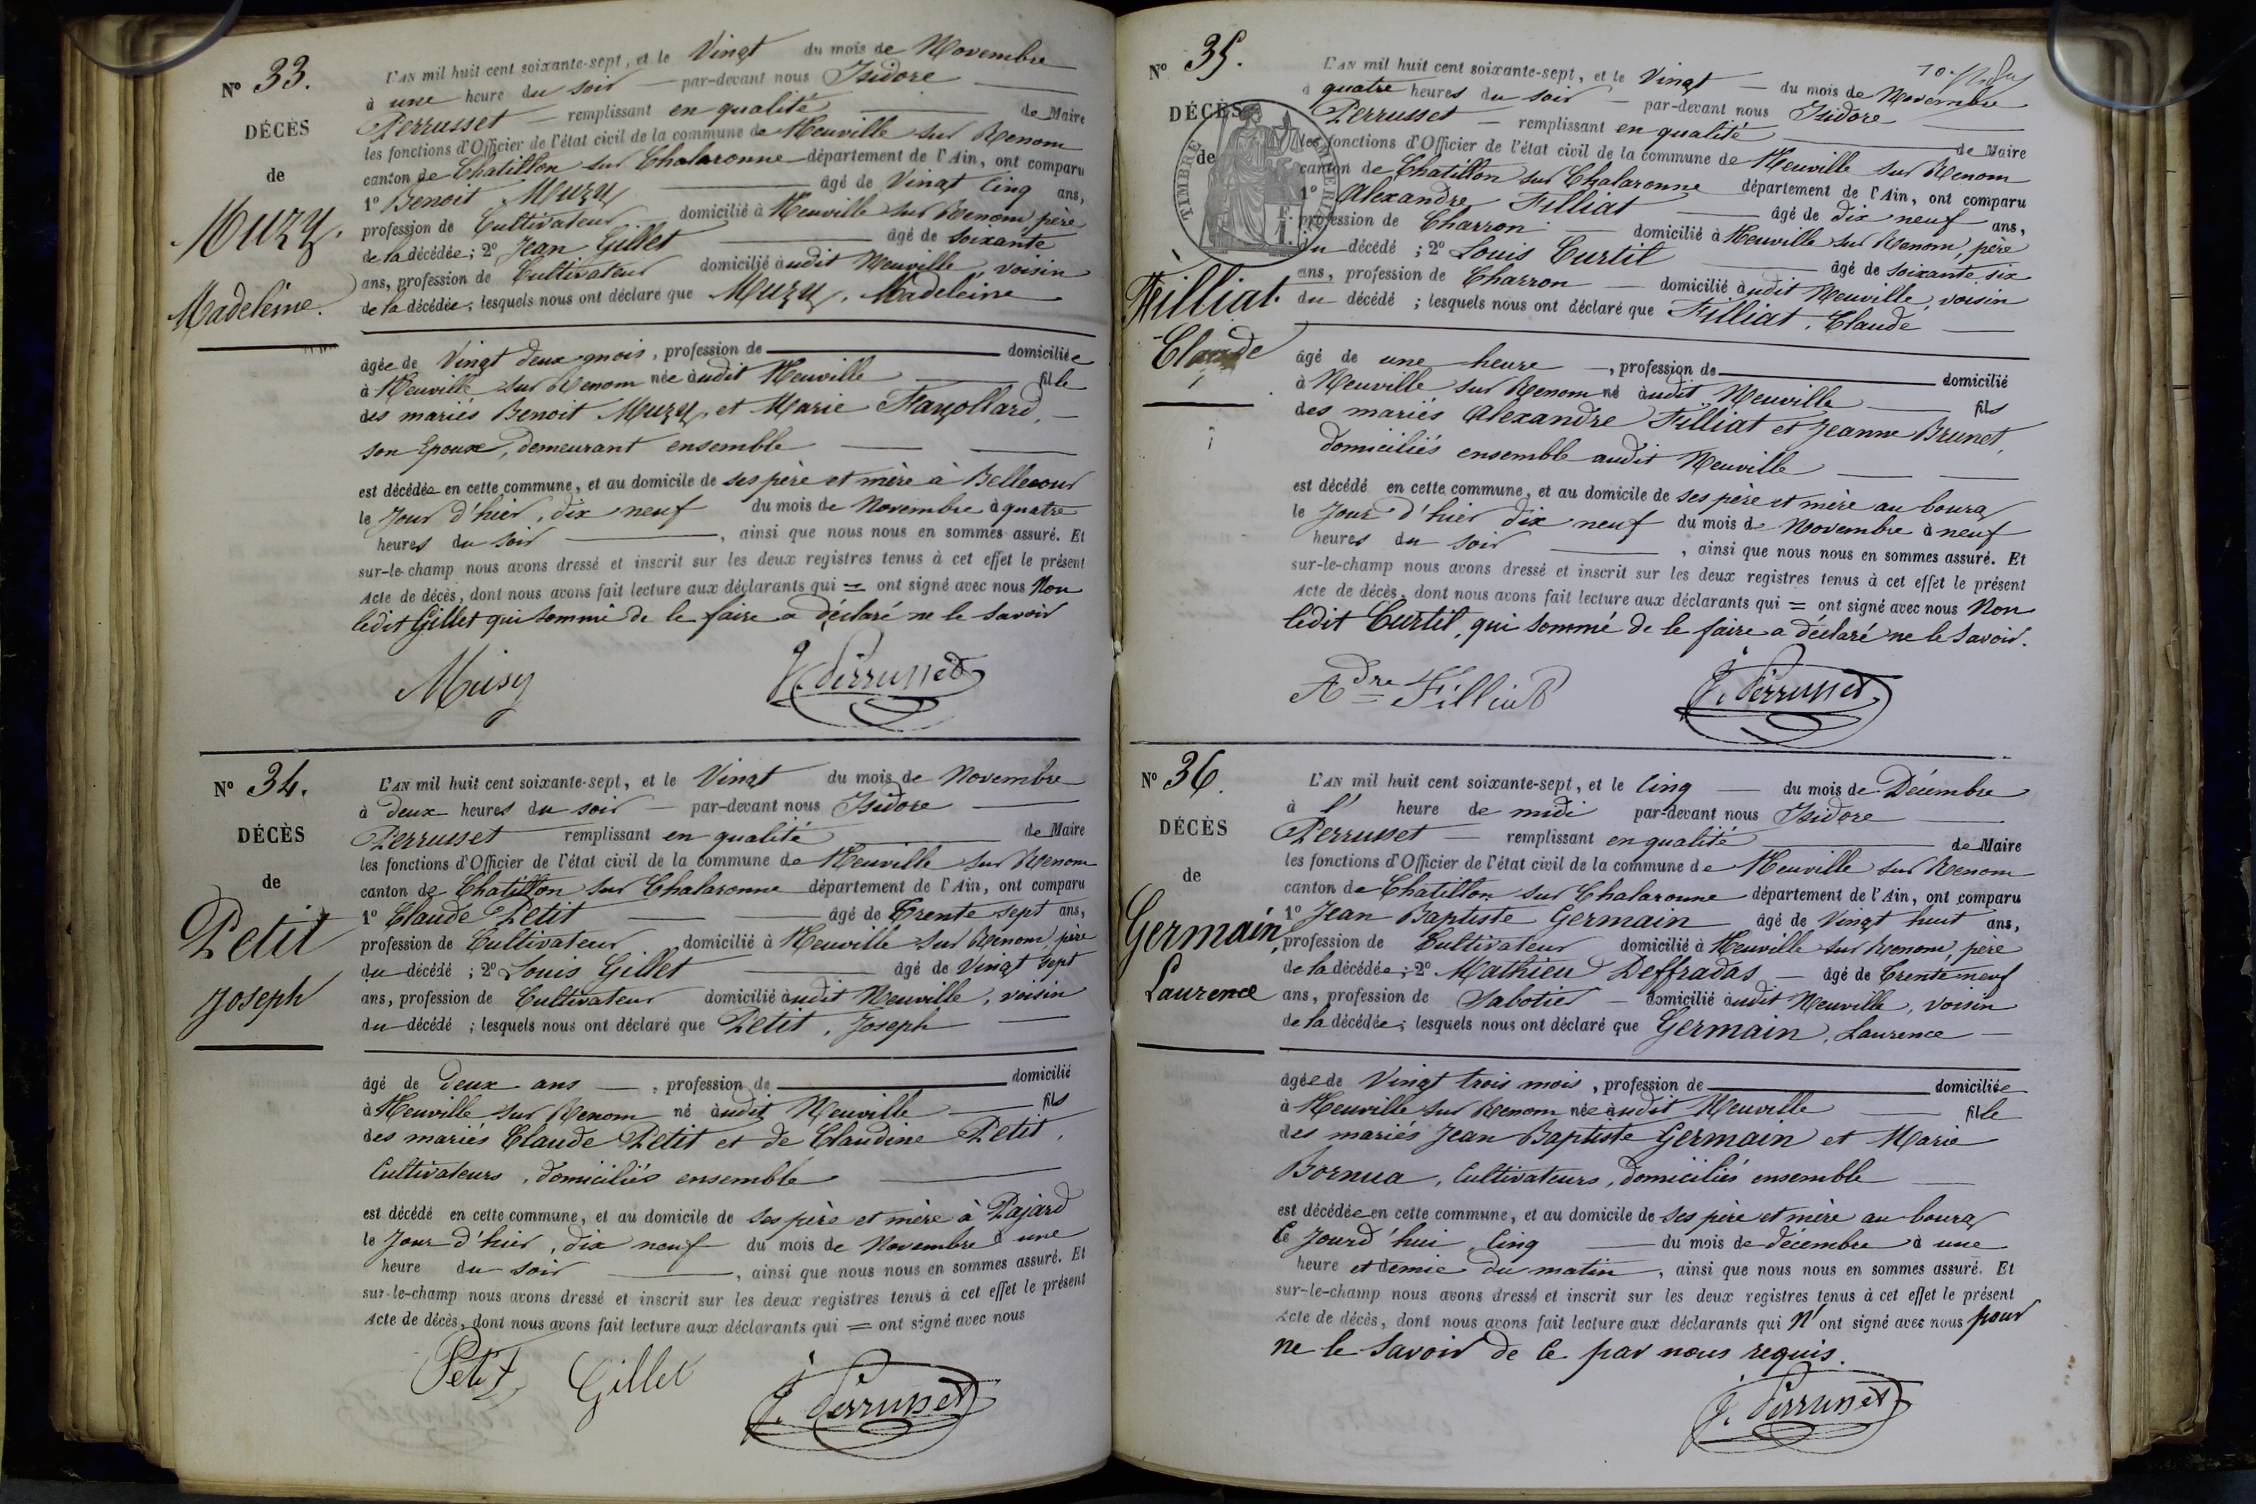 N° 33.
DÉCÈS
de
Muzy.
Madeleine.
L'AN mil huit cent soixante-sept, et le Vingt du mois de Novembre
à une heure du soir par-devant nous Isidore
Perrusset remplissant en qualité de Maire
les fonctions d'Officier de l'état civil de la commune de Neuville sur Renom
canton de Chatillon sur Chalaronne département de l'Ain, ont comparu
1° Benoit Muzy âgé de Vingt Cinq ans,
profession de Cultivateur domicilié à Neuville sur Renom, père
de la décédée; 2° Jean Gillet âgé de soixante
ans, profession de Cultivateur domicilié audit Neuville, voisin
de la décédée; lesquels nous ont déclaré que Muzy, Madeleine
âgée de Vingt deux mois, profession de domiciliée
à Neuville sur Renom née audit Neuville fille
des mariés Benoit Muzy et Marie Fayollard,
son Epoux, demeurant ensemble
est décédée en cette commune, et au domicile de ses père et mère à Bellecour
le Jour d'hier, dix neuf du mois de Novembre à quatre
heures du soir, ainsi que nous nous en sommes assuré. Et
sur-le-champ nous avons dressé et inscrit sur les deux registres tenus à cet effet le présent
Acte de décès, dont nous avons fait lecture aux déclarants qui = ont signé avec nous Non
ledit Gillet qui sommé de le faire a déclaré ne le savoir
Musy J. Perrusset
N° 34.
DÉCÈS
de
Petit
Joseph
L'AN mil huit cent soixante-sept, et le Vingt du mois de Novembre
à deux heures du soir par-devant nous Isidore
Perrusset remplissant en qualité de Maire
les fonctions d'Officier de l'état civil de la commune de Neuville sur Renom
canton de Chatillon sur Chalaronne département de l'Ain, ont comparu
1° Claude Petit âgé de Trente sept ans,
profession de Cultivateur domicilié à Neuville sur Renom, père
du décédé; 2° Louis Gillet âgé de Vingt sept
ans, profession de Cultivateur domicilié audit Neuville, voisin
du décédé; lesquels nous ont déclaré que Petit, Joseph
âgé de deux ans, profession de domicilié
à Neuville sur Renom né audit Neuville fils
des mariés Claude Petit et de Claudine Petit,
Cultivateurs, domiciliés ensemble
est décédé en cette commune, et au domicile de ses père et mère à Pajard
le Jour d'hier, dix neuf du mois de Novembre à une
heure du soir, ainsi que nous nous en sommes assuré. Et
sur-le-champ nous avons dressé et inscrit sur les deux registres tenus à cet effet le présent
Acte de décès, dont nous avons fait lecture aux déclarants qui = ont signé avec nous
Petit Gillet J. Perrusset
N° 35.
DÉCÈS
de
TIMBRE IMPÉRIAL
Filliat.
Claude
L'AN mil huit cent soixante-sept, et le Vingt du mois de Novembre
à quatre heures du soir par-devant nous Isidore
Perrusset remplissant en qualité de Maire
les fonctions d'Officier de l'état civil de la commune de Neuville sur Renom
canton de Chatillon sur Chalaronne département de l'Ain, ont comparu
1° Alexandre Filliat âgé de dix neuf ans,
profession de Charron domicilié à Neuville sur Renom, père
du décédé; 2° Louis Curtil âgé de soixante six
ans, profession de Charron domicilié audit Neuville, voisin
du décédé; lesquels nous ont déclaré que Filliat, Claude
âgé de une heure, profession de domicilié
à Neuville sur Renom né audit Neuville fils
des mariés Alexandre Filliat et Jeanne Brunet,
domiciliés ensemble audit Neuville
est décédé en cette commune, et au domicile de ses père et mère au bourg
le Jour d'hier dix neuf du mois de Novembre à neuf
heures du soir, ainsi que nous nous en sommes assuré. Et
sur-le-champ nous avons dressé et inscrit sur les deux registres tenus à cet effet le présent
Acte de décès, dont nous avons fait lecture aux déclarants qui = ont signé avec nous Non
ledit Curtil, qui sommé de le faire a déclaré ne le savoir.
Adre Filliat J. Perrusset
N° 36.
DÉCÈS
de
Germain,
Laurence
L'AN mil huit cent soixante-sept, et le Cinq du mois de Décembre
à l' heure de midi par-devant nous Isidore
Perrusset remplissant en qualité de Maire
les fonctions d'Officier de l'état civil de la commune de Neuville sur Renom
canton de Chatillon sur Chalaronne département de l'Ain, ont comparu
1° Jean Baptiste Germain âgé de Vingt huit ans,
profession de Cultivateur domicilié à Neuville sur Renom, père
de la décédée; 2° Mathieu Deffradas âgé de Trente neuf
ans, profession de Sabotier domicilié audit Neuville, voisin
de la décédée; lesquels nous ont déclaré que Germain, Laurence
âgée de Vingt trois mois, profession de domiciliée
à Neuville sur Renom née audit Neuville fille
des mariés Jean Baptiste Germain et Marie
Bornua, Cultivateurs, domiciliés ensemble
est décédée en cette commune, et au domicile de ses père et mère au bourg
le Jourd'hui, Cinq du mois de décembre à une
heure et demie du matin, ainsi que nous nous en sommes assuré. Et
sur-le-champ nous avons dressé et inscrit sur les deux registres tenus à cet effet le présent
Acte de décès, dont nous avons fait lecture aux déclarants qui N'ont signé avec nous pour
ne le savoir de ce par nous requis.
J. Perrusset